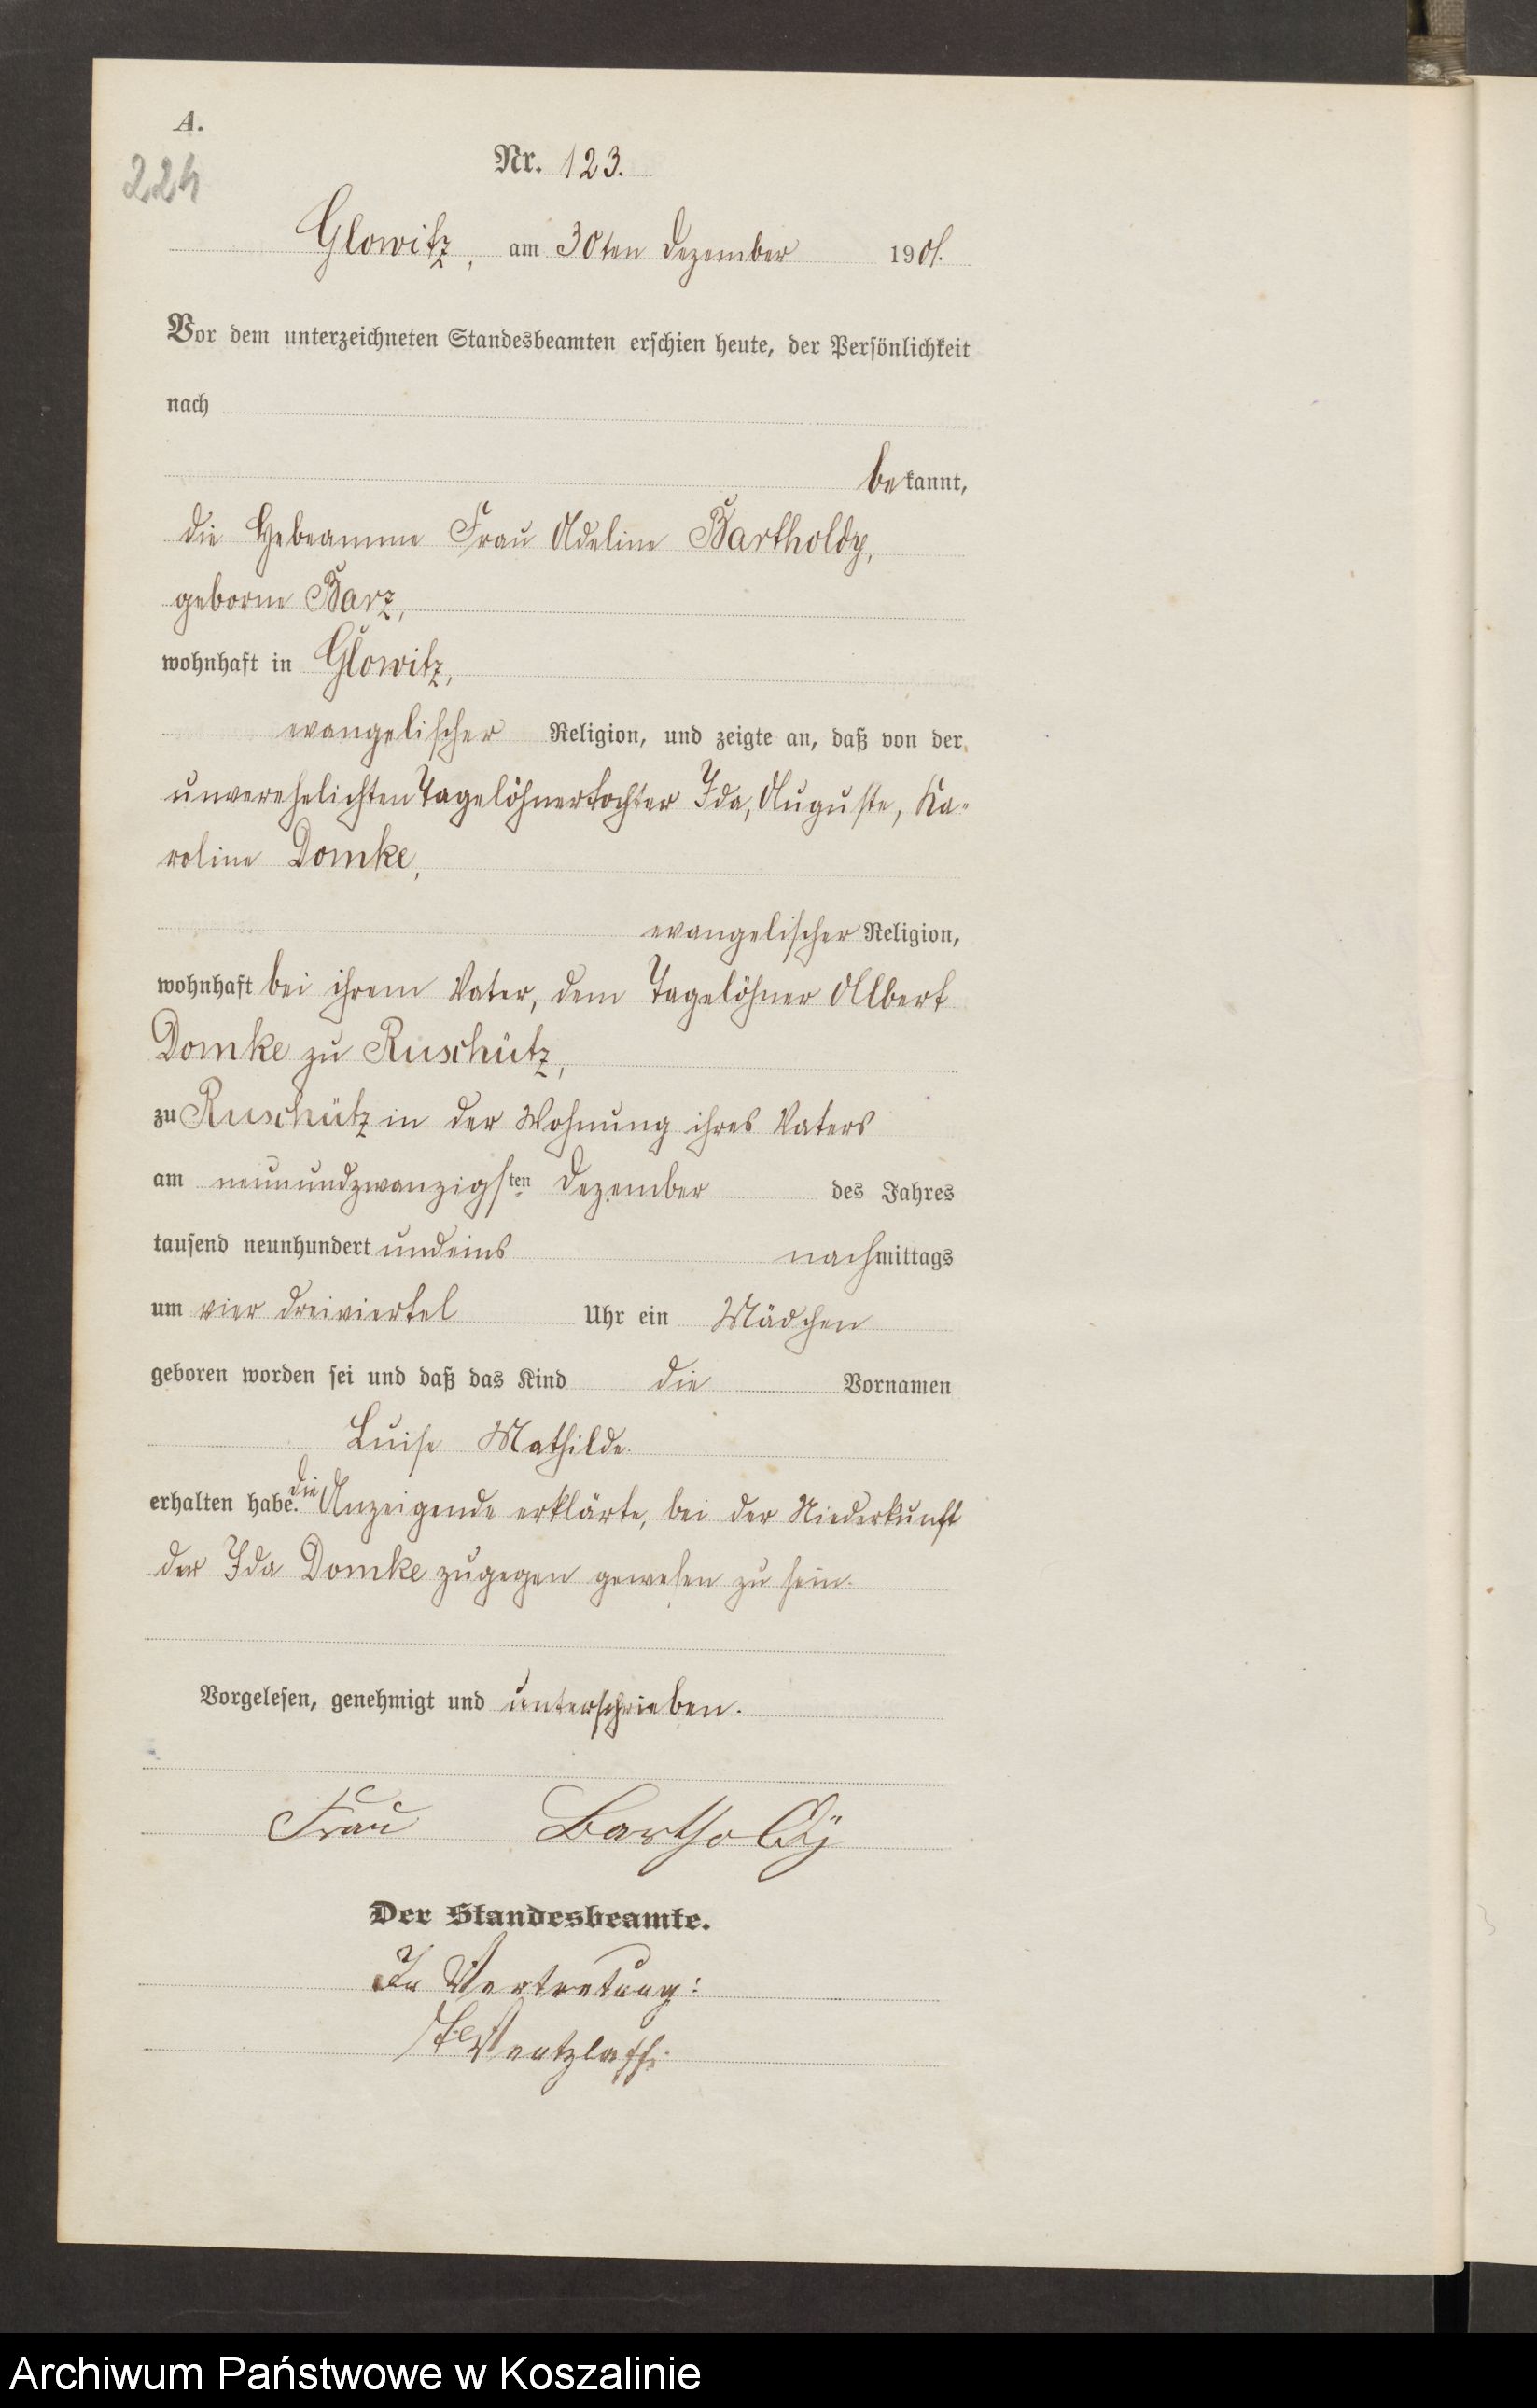 A.
224
Nr. 123.
Glowitz, am 30ten Dezember 1901.
Vor dem unterzeichneten Standesbeamten erschien heute, der Persönlichkeit
nach
bekannt,
die Hebeamme Frau Adeline Bartholdy,
geborne Barz,
wohnhaft in Glowitz,
evangelischer Religion, und zeigte an, daß von der
unverehelichten Tagelöhnertochter Ida, Auguste, Ka-
roline Domke,
evangelischer Religion,
wohnhaft bei ihrem Vater, dem Tagelöhner Albert
Domke zu Ruschütz,
zu Ruschütz in der Wohnung ihres Vaters
am neunundzwanzigsten Dezember des Jahres
tausend neunhundert undeins nachmittags
um vier dreiviertel Uhr ein Mädchen
geboren worden sei und daß das Kind die Vornamen
Luise Mathilde
erhalten habe. Die Anzeigende erklärte, bei der Niederkunft
der Ida Domke zugegen gewesen zu sein.
Vorgelesen, genehmigt und unterschrieben.
Frau Bartholdÿ
Der Standesbeamte.
In Vertretung:
Wentzlaff.
Archiwum Państwowe w Koszalinie